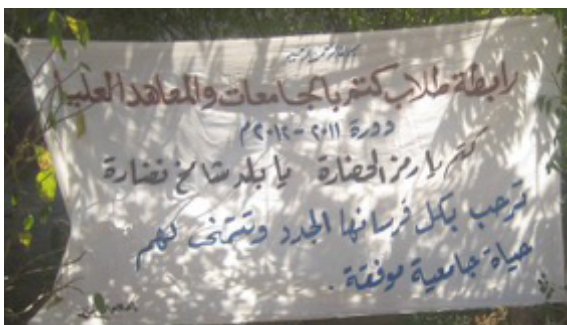 بسم الله الرحمن الرحيم
رابطة طلاب كتم بالجامعات والمعاهد العليا
دورة ٢٠١١ - ٢٠١٢م
كتم يا رمز الحضارة يا بلد شامخ نضارة
ترحب بكل فرسانها الجدد وتتمنى لهم
حياة جامعية موفقة .